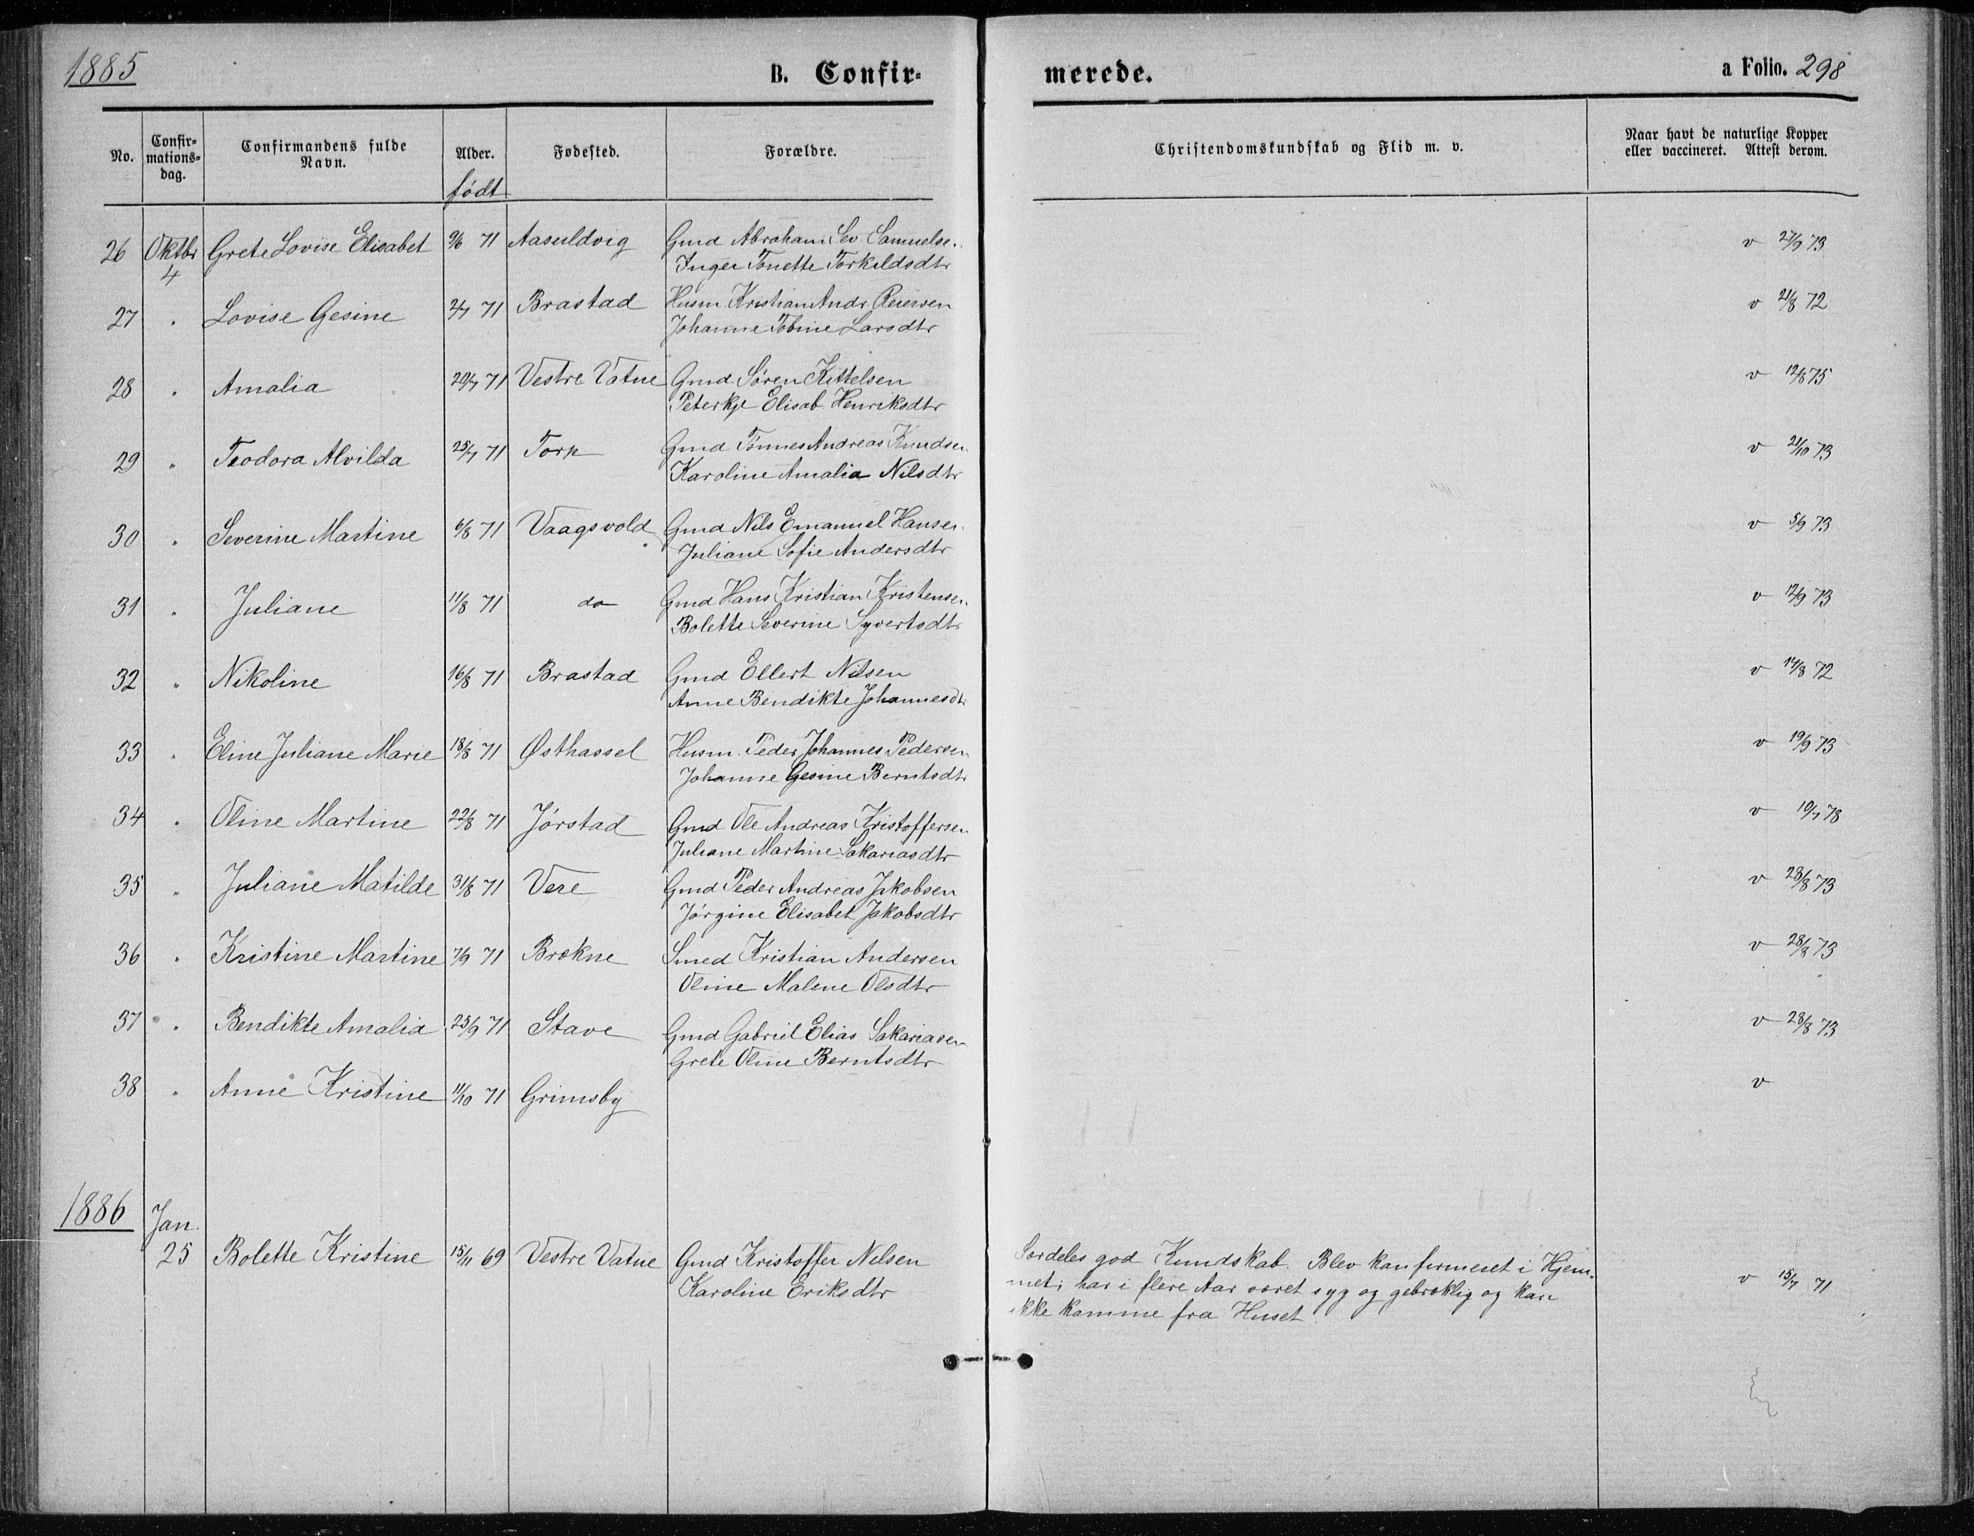 1885
B. Confir- merede.
a Folio. 298
No. Confir-mations-dag. Confirmandens fulde Navn. Alder. Fødested. Forældre. Christendomskundskab og Flid m. v. Naar havt de naturlige Kopper eller vaccineret. Attest derom.
født
26 Oktbr 4 Grete Lovise Elisabet 9/6 71 Aasuldvig Gmd Abraham Sev. Samuelse. v 27/9 73
Inger Tonette Torkildsdtr
27 " Lovise Gesine 71 Brastad Husm. Kristian Andr Reiersen v 21/8 72
Johanne Tobine Larsdtr
28 " Amalia 20/7 71 Vestre Vatne Gmd Søren Kittelsen v 12/8 75
Peterkje Elisab. Henriksdtr
29 " Teodora Alvilda 25/7 71 Torp Gmd Tønnes Andreas Knudsen v 21/10 73
Karoline Amalia Nilsdtr
30 " Severine Martine 6/8 71 Vaagsvold Gmd Nils Emanuel Hansen v 5/9 73
Juliane Sofie Andersdtr
31 " Juliane 11/8 71 do Gmd Hans Kristian Kristensen v 12/9 73
Bolette Severine Syvertsdtr
32 " Nikoline 16/8 71 Brastad Gmd Ellert Nilsen v 14/8 72
Anne Bendikte Johannesdtr
33 " Eline Juliane Marie 18/8 71 Østhassel Husm. Peder Johannes Pedersen v 19/9 73
Johanne Gesine Berntsdtr
34 " Oline Martine 22/8 71 Jørstad Gmd Ole Andreas Kristoffersen v 10/7 78
Juliane Martine Sakariasdtr
35 " Juliane Matilde 31/8 71 Vere Gmd Peder Andreas Jakobsen v 28/8 73
Jørgine Elisabet Jakobsdtr
36 " Kristine Martine 7/9 71 Brekne Smed Kristian Andersen v 28/8 73
Oline Malene Olsdtr
37 " Bendikte Amalia 25/9 71 Stave Gmd Gabriel Elias Sakariasen v 28/8 73
Grete Oline Berntsdtr
38 " Anne Kristine 11/10 71 Grimsby v
1886
Jan. 25 Bolette Kristine 15/11 69 Vestre Vatne Gmd Kristoffer Nelsen Særdeles god Kundskab. Blev konfirmeret i Hjem- v 15/7 71
Karoline Eriksdtr met; har i flere Aar været syg og gebræklig og kan
ikke komme fra Huset.